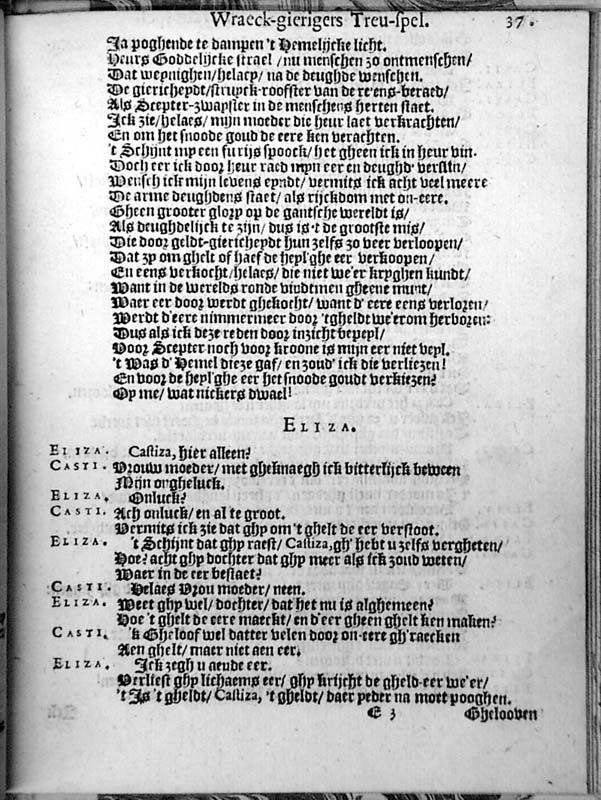 Wraeck-gierigers Treu-spel. 37.
Ja poghende te dampen 't Hemelijcke licht.
Heurs Goddelijcke strael / nu menschen zo ontmenschen/
Dat weynighen/ helaey/ na de deughde wenschen.
De giericheydt/ struyck-roofster van de re'ens-beraed/
Als Scepter-zwayster in de menschens herten staet.
Ick zie/ helaes/ mijn moeder die heur laet verkrachten/
En om het snoode goud de eere ken verachten.
't Schijnt my een furijs spoock/ het gheen ick in heur vin.
Doch eer ick door heur raed mijn eer en deughd' verslin/
Wensch ick mijn levens eyndt/ vermits ick acht veel meere
De arme deughdens staet/ als rijckdom met on-eere.
Gheen grooter glory op de gantsche wereldt is/
Als deughdelijck te zijn/ dus is 't de grootste mis/
Die door geldt-giericheydt hun zelfs zo veer verloopen/
Dat zy om ghelt of haef de heyl'ghe eer verkoopen/
En eens verkocht/ helaes/ die niet we'er kryghen kundt/
Want in de werelds ronde vindtmen gheene munt/
Waer eer door werdt ghekocht/ want d'eere eens verloren/
Werdt d'eere nimmermeer door 'tgheldt we'erom hervoren:
Dus als ick deze reden door inzicht bepeyl/
Voor Scepter noch voor kroone is mijn eer niet veyl.
't Was d'Hemel dieze gaf/ en zoud' ick die verliezen!
En voor de heyl'ghe eer het snoode goudt verkiezen?
Op me/ wat nickers dwael!
ELIZA.
ELIZA. Castiza, hier alleen?
CASTI. Vrouw moeder/ met gheknaegh ick bitterlijck beween
Mijn ongheluck.
ELIZA. Onluck?
CASTI. Ach onluck/ en al te groot.
Vermits ick zie dat ghy om 't ghelt de eer verstoot.
ELIZA. 't Schijnt dat ghy raest/ Castiza, gh' hebt u zelfs vergheten/
Hoe? acht ghy dochter dat ghy meer als ick zoud weten/
Waer in de eer bestaet?
CASTI. Helaes Vrou moeder/ neen.
ELIZA. Weet ghy wel/ dochter/ dat het nu is alghemeen?
Hoe 't ghelt de eere maeckt/ en d'eer gheen ghelt ken maken?
CASTI. 'k Gheloof wel datter velen door on-eere gh'raecken
Aen ghelt/ maer niet aen eer.
ELIZA. Ick zegh u aen de eer.
Verliest ghy lichaems eer/ ghy krijcht de gheld-eer we'er/
't Is 't gheldt/ Castiza, 't gheldt/ daer yeder na moet pooghen.
E 3 Ghelooven